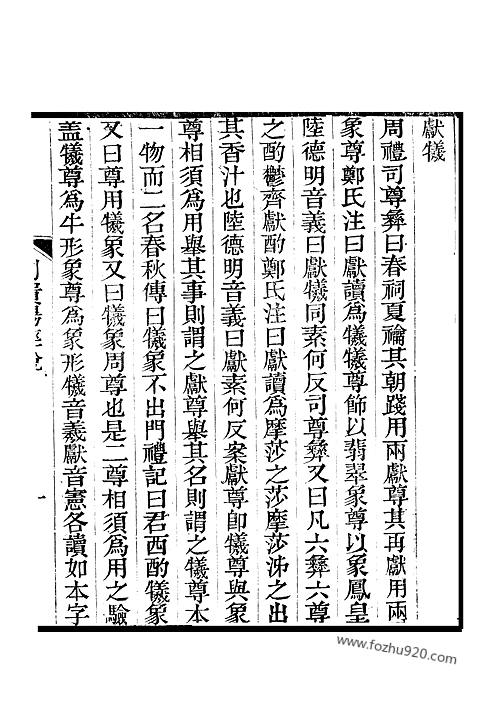 獻犧
周禮司尊彝曰春祠夏禴其朝踐用兩獻尊其再獻用兩
象尊鄭氏注曰獻讀爲犧犧尊飾以翡翠象尊以象鳳皇
陸德明音義曰獻犧同素何反司尊彝又曰凡六彝六尊
之酌鬱齊獻酌鄭氏注曰獻讀爲摩莎之莎摩莎泲之出
其香汁也陸德明音義曰獻素何反案獻尊卽犧尊與象
尊相須爲用舉其事則謂之獻尊舉其名則謂之犧尊本
一物而二名春秋傳曰犧象不出門禮記曰君西酌犧象
又曰尊用犧象又曰犧象周尊也是二尊相須爲用之驗
盖犧尊爲牛形象尊爲象形犧音羲獻音憲各讀如本字
一
www.fozhu920.com